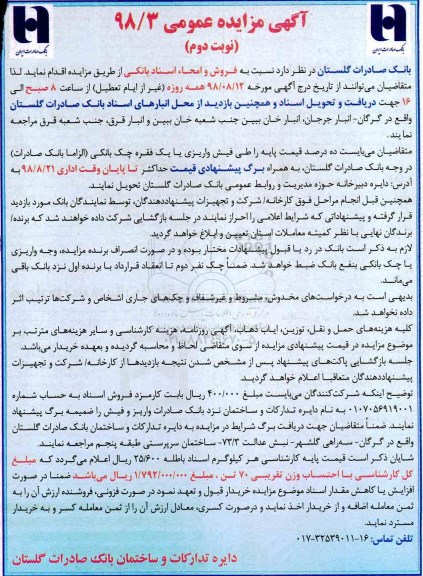 آگهی مزایده عمومی ۹۸/۳
(نوبت دوم)
بانک صادرات ایران
بانک صادرات ایران
بانک صادرات گلستان در نظر دارد نسبت به فروش و امحاء اسناد بانکی از طریق مزایده اقدام نماید. لذا
متقاضیان می‌توانند از تاریخ درج آگهی مورخه ۹۸/۰۸/۱۲ همه روزه (غیر از ایام تعطیل) از ساعت ۸ صبح الی
۱۶ جهت دریافت و تحویل اسناد و همچنین بازدید از محل انبارهای اسناد بانک صادرات گلستان
واقع در گرگان- انبار جرجان، انبار خان ببین جنب شعبه خان ببین و انبار قرق، جنب شعبه قرق مراجعه
نمایند.
متقاضیان می‌بایست ده درصد قیمت پایه را طی فیش واریزی یا یک فقره چک بانکی (الزاما بانک صادرات)
در وجه بانک صادرات گلستان، به همراه برگ پیشنهادی قیمت حداکثر تا پایان وقت اداری ۹۸/۸/۲۱ به
آدرس: دایره دبیرخانه حوزه مدیریت و روابط عمومی بانک صادرات گلستان تحویل نمایند.
همچنین قبل انجام مراحل فوق کارخانه/ شرکت و تجهیزات پیشنهاددهندگان، توسط نمایندگان بانک مورد بازدید
قرار گرفته و پیشنهاداتی که شرایط اعلامی را احراز نمایند در جلسه بازگشایی شرکت داده خواهند شد که برنده/
برندگان نهایی با نظر کمیته معاملات استان تعیین و ابلاغ خواهد گردید.
لازم به ذکر است بانک در رد یا قبول پیشنهادات مختار بوده و در صورت انصراف برنده مزایده، وجه واریزی
یا چک بانکی بنفع بانک ضبط خواهد شد. ضمناً چک نفر دوم تا انعقاد قرارداد با برنده اول نزد بانک باقی
می‌ماند.
بدیهی است به درخواست‌های مخدوش، مشروط و غیرشفاف و چک‌های جاری اشخاص و شرکت‌ها ترتیب اثر
داده نخواهد شد.
کلیه هزینه‌های حمل و نقل، توزین، ایاب ذهاب، آگهی روزنامه، هزینه کارشناسی و سایر هزینه‌های مترتب بر
موضوع مزایده در قیمت پیشنهادی مزایده از سوی متقاضی لحاظ و محاسبه گردیده و بعهده خریدار می‌باشد.
جلسه بازگشایی پاکت‌های پیشنهاد پس از مشخص شدن نتیجه بازدیدها از کارخانه/ شرکت و تجهیزات
پیشنهاددهندگان متعاقبا اعلام خواهد گردید.
توضیح اینکه شرکت‌کنندگان می‌بایست مبلغ ۴۰۰/۰۰۰ ریال بابت کارمزد فروش اسناد به حساب شماره
۰۱۰۷۰۵۶۹۱۹۰۰۱ به نام دایره تدارکات و ساختمان نزد بانک صادرات واریز و فیش را ضمیمه برگ پیشنهاد
نمایند. ضمناً متقاضیان جهت دریافت برگ شرایط در مزایده به دایره تدارکات و ساختمان بانک صادرات گلستان
واقع در گرگان- سه‌راهی گلشهر- نبش عدالت ۷۳/۳- ساختمان سرپرستی طبقه پنجم مراجعه نمایند.
شایان ذکر است قیمت پایه کارشناسی هر کیلوگرم اسناد باطله ۲۵/۶۰۰ ریال اعلام می‌گردد که مبلغ
کل کارشناسی با احتساب وزن تقریبی ۷۰ تن ، مبلغ ۱/۷۹۲/۰۰۰/۰۰۰ ریال می‌باشد ضمنا در صورت
افزایش یا کاهش مقدار اسناد موضوع مزایده خریدار قبول و تعهد نمود در صورت فزونی، فروشنده ارزش آن را به
ثمن معامله اضافه و از خریدار اخذ نماید و درصورت کسری، معادل ارزش آن را از ثمن معامله کسر و به خریدار
مسترد نماید.
تلفن تماس: ۱۶-۰۱۷-۳۲۵۳۹۰۱۱
دایره تدارکات و ساختمان بانک صادرات گلستان